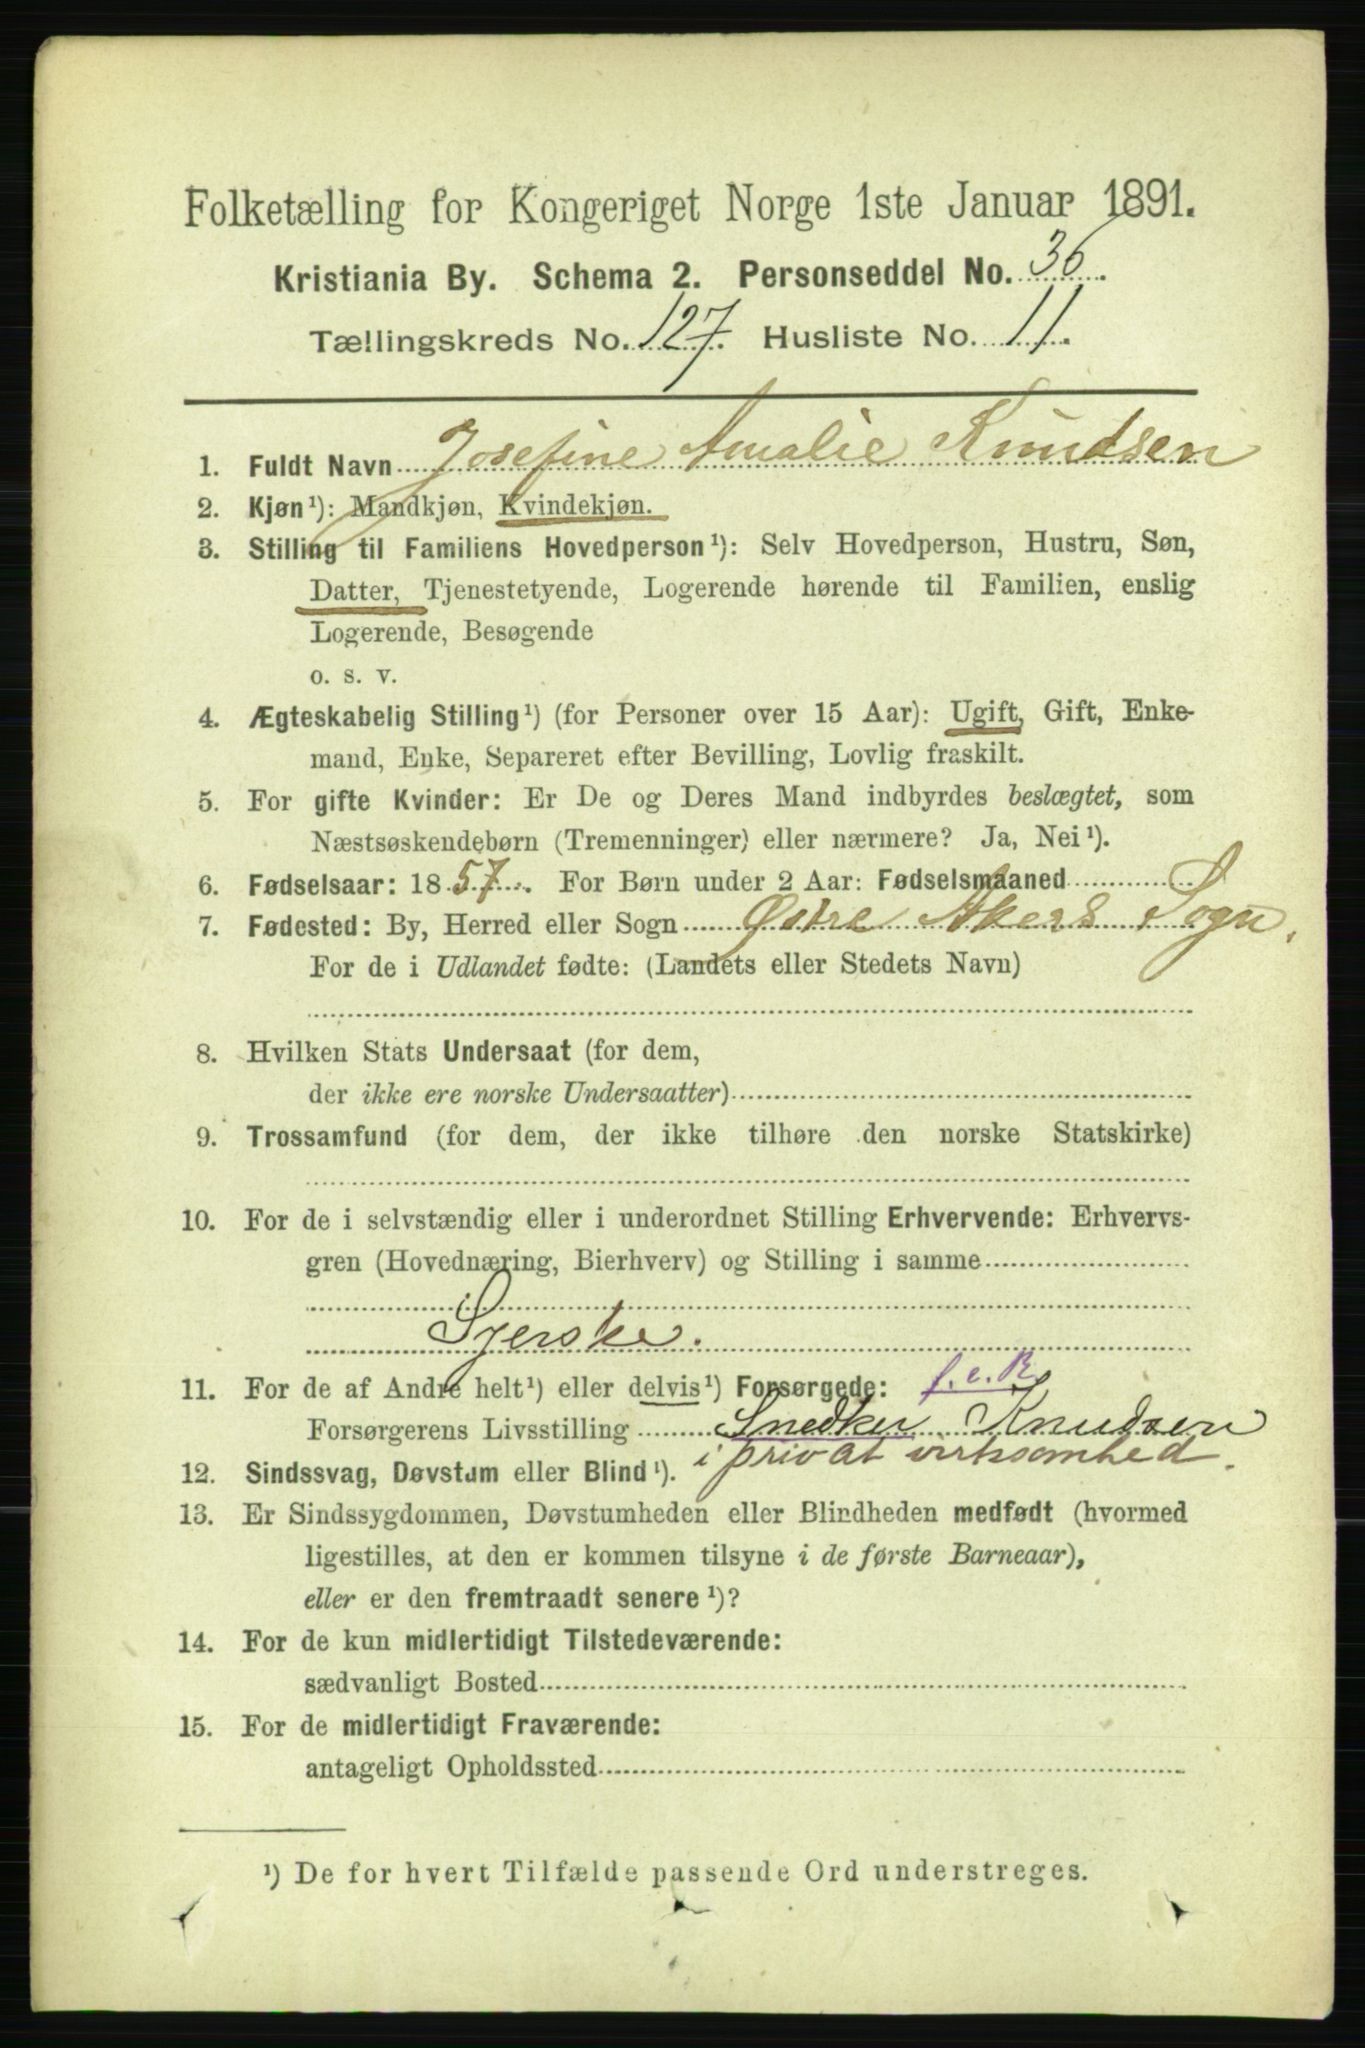 Folketælling for Kongeriget Norge 1ste Januar 1891.
Kristiania By. Schema 2. Personseddel No. 36.
Tællingskreds No. 127. Husliste No. 11.
1. Fuldt Navn Josefine Amalie Knudsen
2. Kjøn¹): Mandkjøn, Kvindekjøn.
3. Stilling til Familiens Hovedperson¹): Selv Hovedperson, Hustru, Søn,
Datter, Tjenestetyende, Logerende hørende til Familien, enslig
Logerende, Besøgende
o. s. v.
4. Ægteskabelig Stilling¹) (for Personer over 15 Aar): Ugift, Gift, Enke-
mand, Enke, Separeret efter Bevilling, Lovlig fraskilt.
5. For gifte Kvinder: Er De og Deres Mand indbyrdes beslægtet, som
Næstsøskendebørn (Tremenninger) eller nærmere? Ja, Nei¹).
6. Fødselsaar: 1857. For Børn under 2 Aar: Fødselsmaaned
7. Fødested: By, Herred eller Sogn Østre Akers Sogn.
For de i Udlandet fødte: (Landets eller Stedets Navn)
8. Hvilken Stats Undersaat (for dem,
der ikke ere norske Undersaatter)
9. Trossamfund (for dem, der ikke tilhøre den norske Statskirke)
10. For de i selvstændig eller i underordnet Stilling Erhvervende: Erhvervs-
gren (Hovednæring, Bierhverv) og Stilling i samme
Syerske.
11. For de af Andre helt¹) eller delvis¹) Forsørgede: f.e.R.
Forsørgerens Livsstilling Snedker Knudsen
i privat virksomhed.
12. Sindssvag, Døvstum eller Blind¹).
13. Er Sindssygdommen, Døvstumheden eller Blindheden medfødt (hvormed
ligestilles, at den er kommen tilsyne i de første Barneaar),
eller er den fremtraadt senere¹)?
14. For de kun midlertidigt Tilstedeværende:
sædvanligt Bosted
15. For de midlertidigt Fraværende:
antageligt Opholdssted
¹) De for hvert Tilfælde passende Ord understreges.